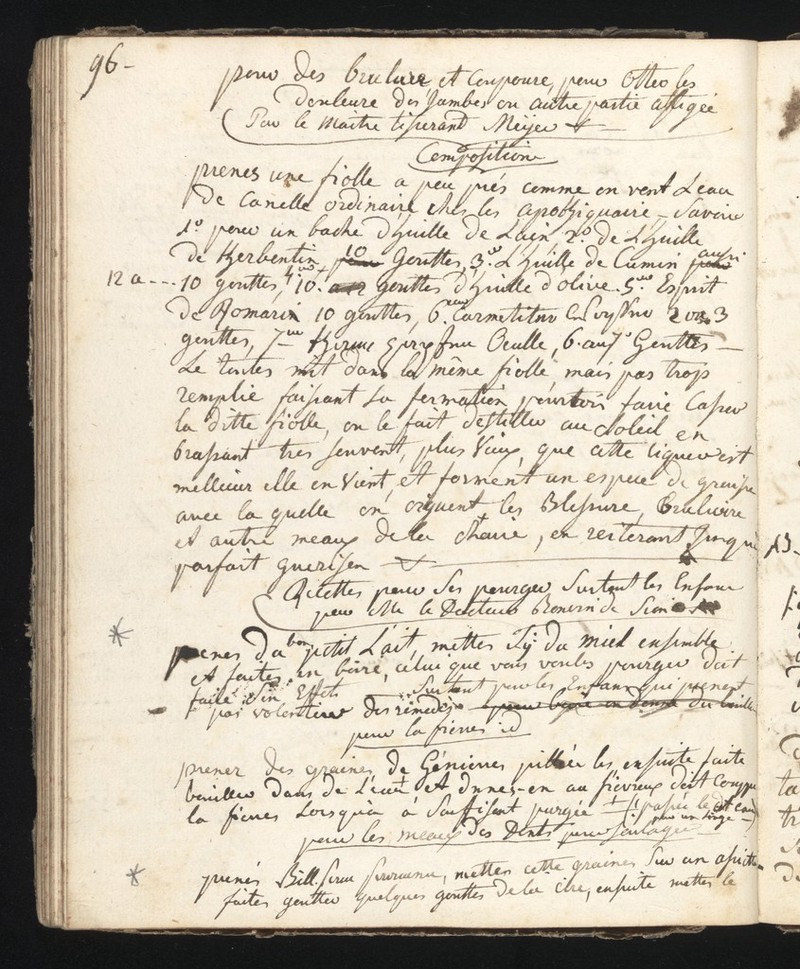 96-
pour des brulure et Coupoure, pour Otter les
douleure des Jambe ou autre partie affligée
Par le Maitre tiserant Meÿer
Composition
prenes une fiolle a peu près comme on vent L'eau
de Canelle ordinaire ches les apotiquaire, Savoir
1º pour un bache d'huille de Laein 2º de L'huille
de Therbentin 10 Goutter 3º L'huille de Cumin aussi
12 a --- 10 goutter, 4º 10. goutter d'huille d'olive. 5º Esprit
de Romarin 10 goutter, 6. 3
goutter, 7 Oculle, 6. Goutter
Le toutes mit dans la même fiolle, mais pas trop
remplie faissant sa fermation pourroit faire Casser
la ditte fiolle, on le fait destiller au Soleil en
brassant tres souvent, plus Vieux, que cette liqueur est
melleur elle en Vient, et forment un espece de graisse
avec la quelle on oiguent les Blessure, Brulure
et autre meaux de la chaire, en reiterant Jusque
parfait guerison
Recettes pour Ses pourger Surtout les Enfans
par Mr le Docteur de Sion
prenes du bon petit Lait, mettes y du Miel ensemble
et faites en boire, celui que vous voules pourger doit
faire Son Effets Surtout pour les Enfans qui prenent
pas volontiere des rémedes
pour la fievres id
prener des graines de Génievres pillée les ensuite faite
bouillir dans de L'eau et donnes-en au fievreux doit Couppe
la fievres Lorsqu'on à Suffisant purgée
pour un linge
pour les meaux des Dents pour soulager
prenés Bill. , mettes cette graines Sur un assiette
faites goutter quelques gouttes de la cire, ensuite mettes le